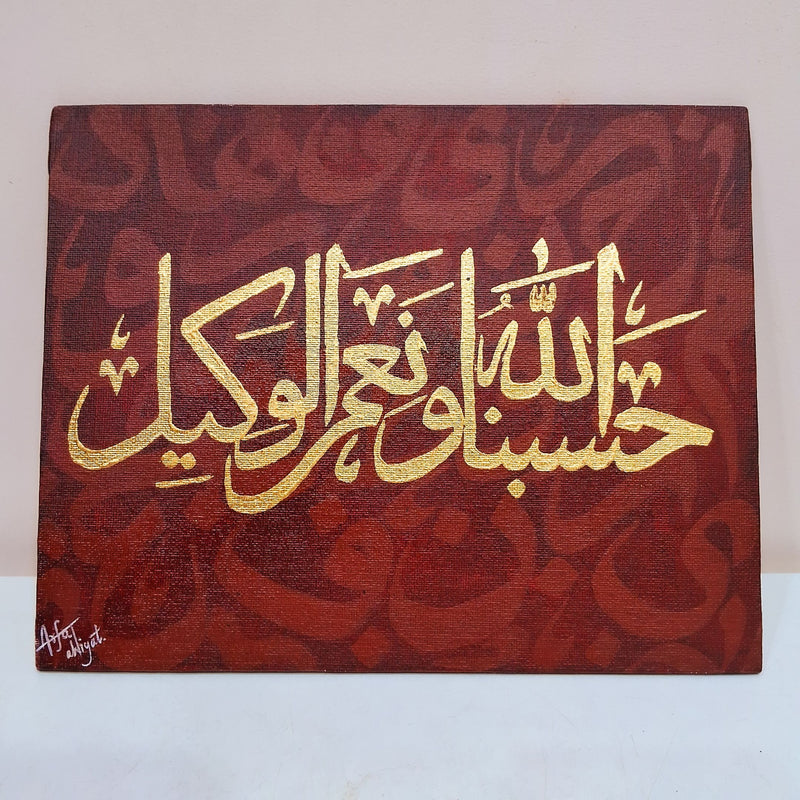 حسبنا الله ونعم الوكيل
Arfa
ahliyat.